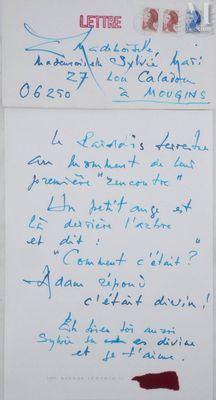 LETTRE
Mademoiselle
Mademoiselle Sylvie Mari
27 Lou Caladou
06250 à MOUGINS
Le Paradis terrestre
au moment de leur
première "rencontre"
Un petit ange est
là derrière l'arbre
et dit :
"Comment c'était ?
Adam répond
c'était divin !
Eh bien toi aussi
Sylvie tu es divine
et je t'aime.